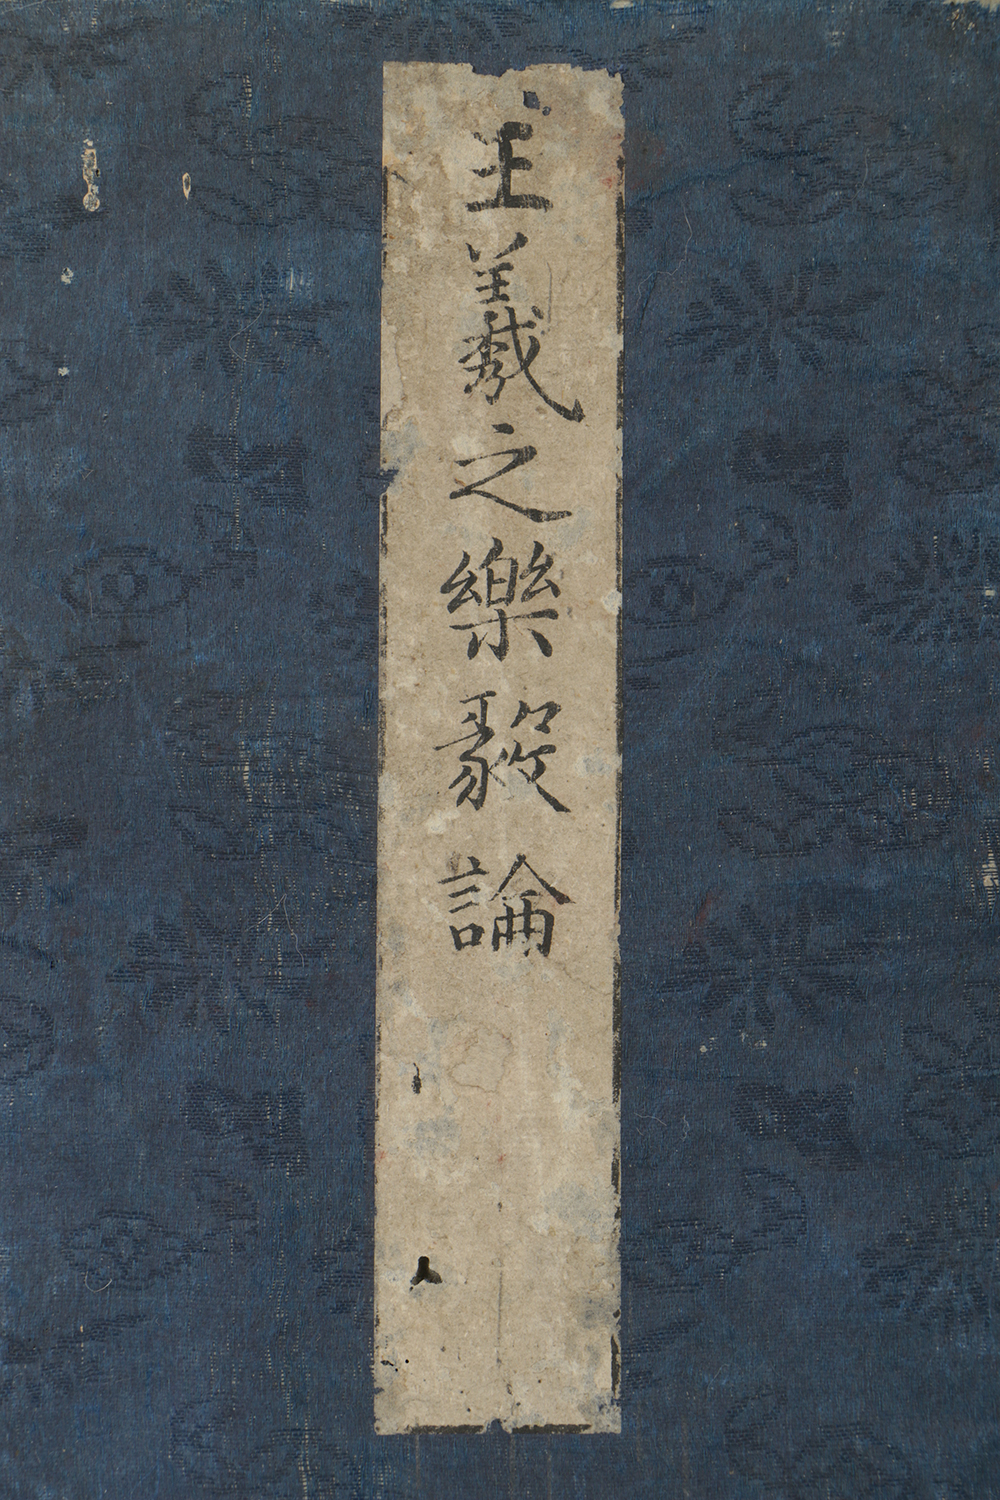 王羲之樂毅論